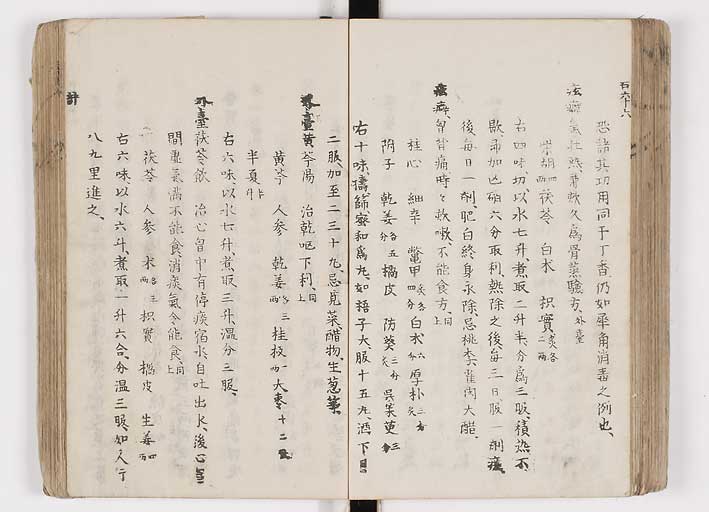 恐諸其功用同于丁香仍如犀角消毒之例也、
痃癖氣壮熱兼嗽久為骨蒸驗方、外臺
柴胡四兩茯苓 白朮 枳實炙各二兩
右四味切以水七升、煮取二升半、分為三服、積熱不
歇、即加芒硝六分取利、熱除之後每三日服一劑、
後每日一劑、肥白終身永除、忌桃李雀肉大醋、
痃癖、胷背痛、時々咳嗽、不能食方、上同
桂心 細辛 鼈甲炙各四分白朮六分厚朴三分
附子 乾姜各五分橘皮 防葵三分 吳茱萸三分
右十味、擣篩蜜和為丸、如梧子大服十五丸、酒下日
二服、加至二三十丸、忌莧菜醋物、生葱等、
外臺黃芩湯 治乾嘔下利、上同
黃芩 人参 乾姜各三兩桂枝一兩大棗十二
半夏半升
右六味、以水七升、煮取三升、温分三服、
外臺茯苓飲 治心胷中有停痰宿水、自吐出水、後心胷
間虛、氣滿不能食、消痰氣令能食、上同
茯苓 人参 朮各三兩枳實 橘皮 生姜四兩
右六味、以水六升、煮取一升六合、分温三服、如人行
八九里進之、